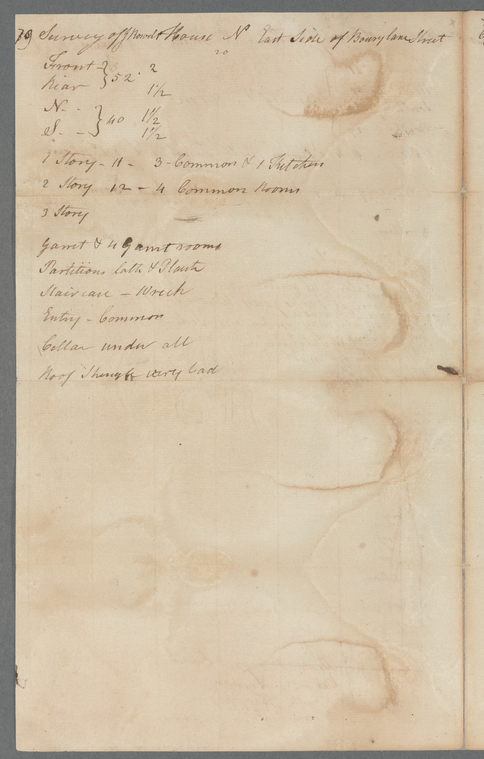 Survey off House No East Side of Bowry lane Street
20
Front } 52. 2
Rear 1½
N. - } 40 1½
S. - 1½
1 Story - 11 - 3 - Common & 1 Kitchen
2 Story 12 - 4 Common Rooms
3 Story
Garret & 4 Garret rooms
Partitions lath & Plaster
Stair case - Wreck
Entry - Common
Cellar under all
Roof Shingle very bad